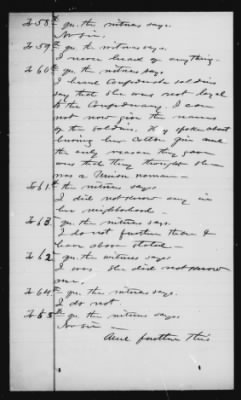 To 58th qu. the witness says.
No sir.
To 59th qu. the witness says.
I never heard of anything.
To 60th qu. the witness says
I heard Confederate soldiers
say that she was not loyal
to the Confederacy. I can
not now give the names
of the soldiers. They spoke about
burning her Cotton Gin and
the only reason they gave
was that they thought she
was a Union woman —
To 61st the witness says
I did not know any in
her neighborhood.
To 63. qu. the witness says.
I do not further than I
have above stated —
To 62 qu. the witness says
I was. She did not know
me.
To 64th qu. the witness says.
I do not.
To 65th qu. the witness says
No sir —
And further this